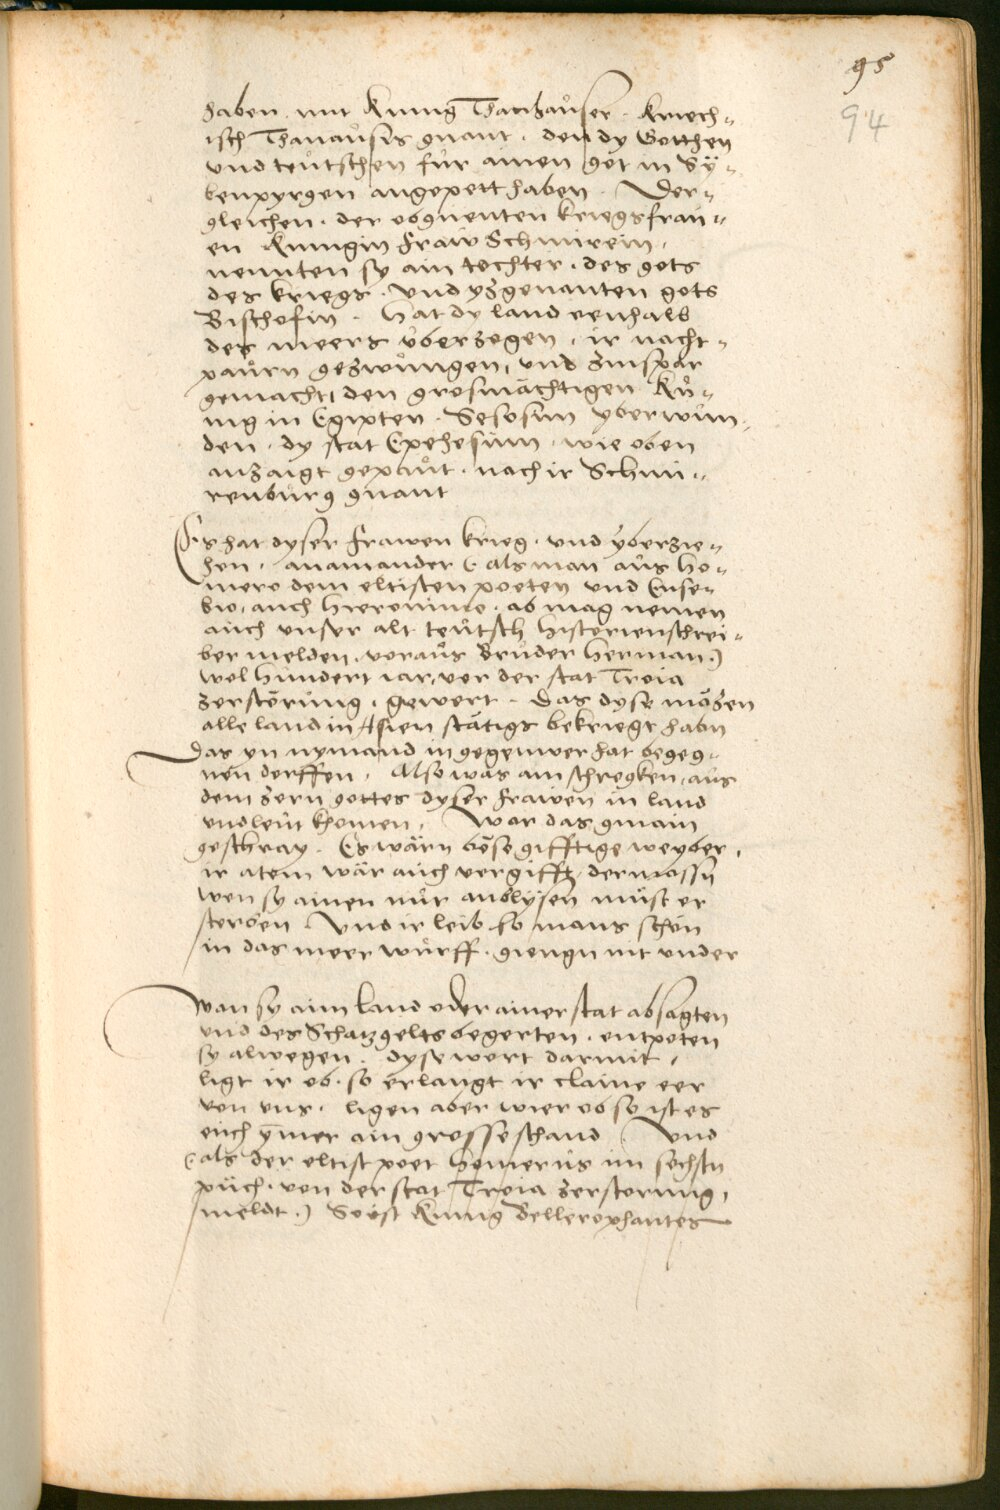 95
94
haben mit Kunig Thanhaůser. Kriech-
isch Thanaůsis gnant. den dy Gotthen
vnd teůtschen fůr ainen got in Sy-
benpyrgen angepett haben. Der-
gleichen. der obgnenten kriegsfraw-
en Kunigin fraw Schmirein,
nennten sy ain tochter. des gots
des kriegs. vnd yzgenanten gots
Bischofin. Hat dy land eenhalb
des meers vberzogen, ir nacht-
paůrn gezwůngen, vnd zinspar
gemacht, den grosmächtigen Ků-
nig in Egipten. Sesosim yberwůn-
den. dy stat Ephesum. wie oben
anzaigt gepaůt. nach ir Schmi-
renbůrg gnant
Es hat dyser frawen krieg. vnd yberzie-
hen. anainander (als man aůs Ho-
mero dem eltisten poeten vnd Euse-
bio, auch Hieronimo. ab mag nemen
aůch vnser alt teůtsch historienschrei-
ber melden. voraůs Brůder Herman)
wol hundert iar, vor der stat Troia
zerstörůng, gewert. Das dyse mözen
alle land in Asien stätigs bekriegt habn
Das yn nymand in gegenwer hat begeg-
nen derffen, Also was ain schregken, aůs
dem zorn gottes dyser frawen in land
vnd leůt khomen, War das gmain
geschray. Es wärn böse gifftige weyber,
ir atem wär aůch vergifft, dermossn
wen sy ainen nůr anblysen můst er
sterben. Vnd ir leib so mans schon
in das meer wůrff. giengn nit vnder
Wan sy aim land oder ainer stat absagten
vnd des Schatzgelts begerten. entpoten
sy alwegen. dyse wort darmit,
ligt ir ob. so erlangt ir claine eer
von vns. ligen aber wier ob so ist es
eůch ymer ain grosse schand. Vnd
(als der eltist poet Homerůs im sechstn
půch. von der stat Troia zerstorung,
meldt.) Sobst Kunig Bellerophantes